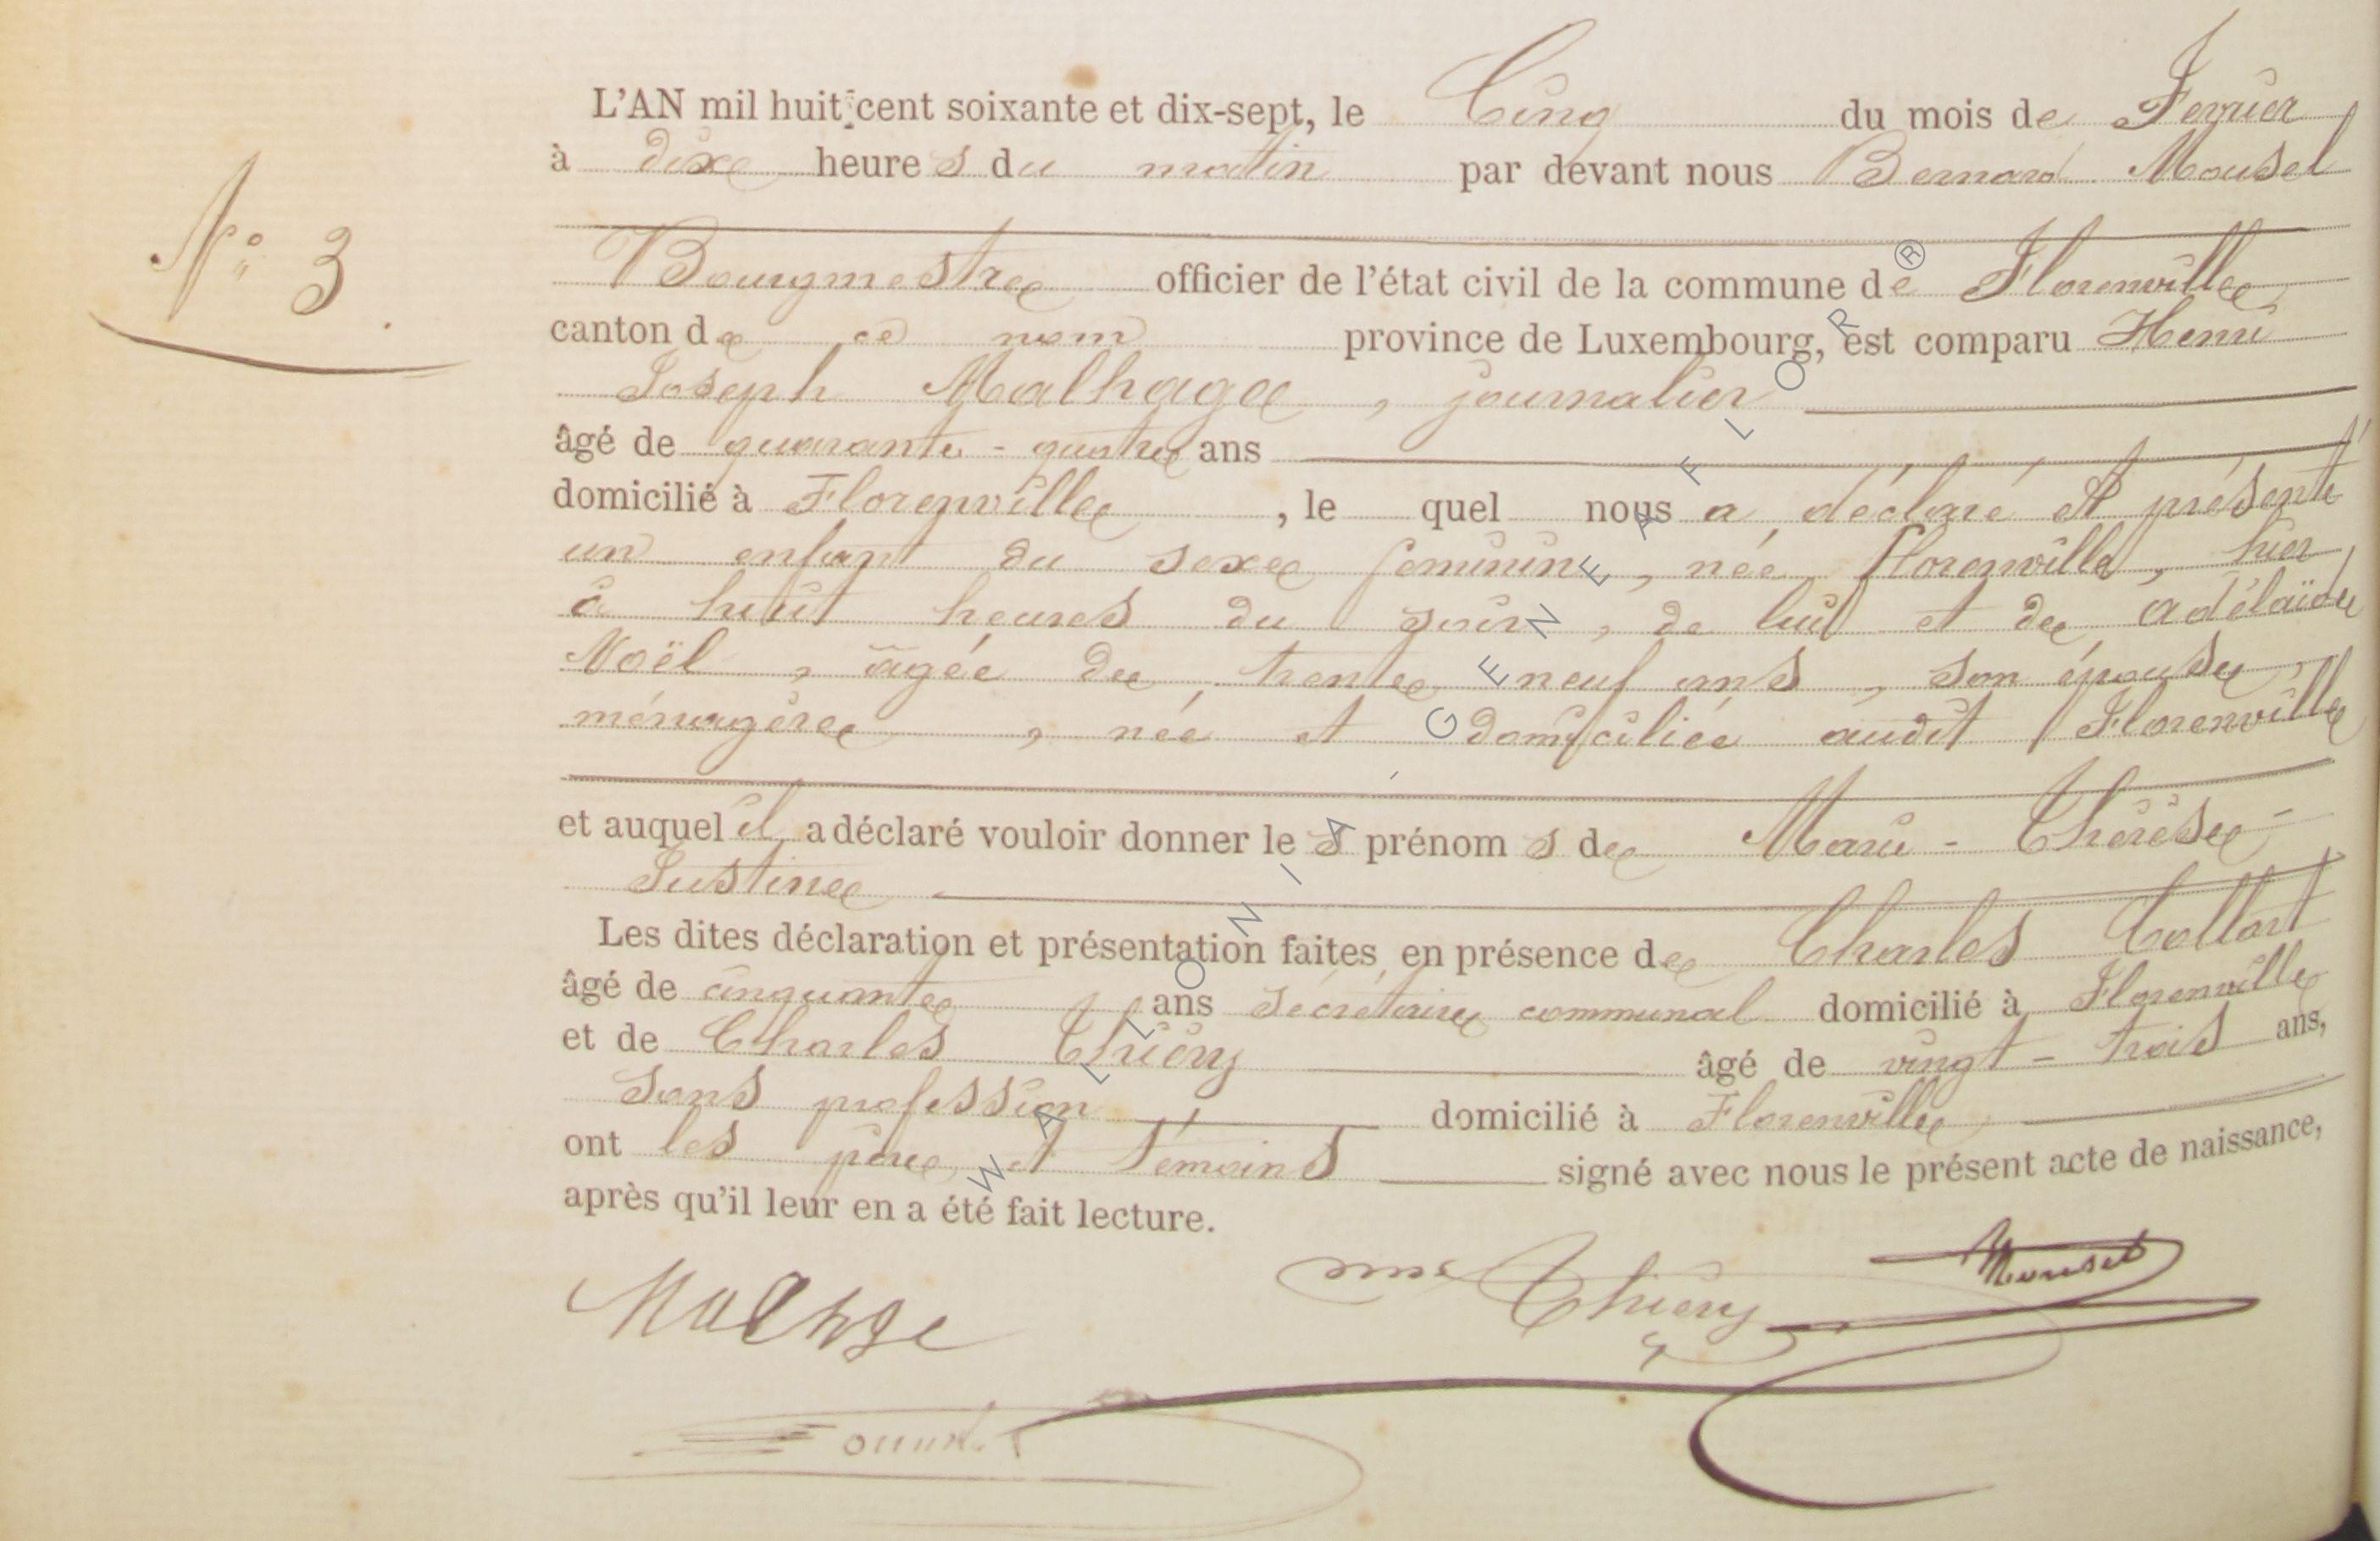 L'AN mil huit cent soixante et dix-sept, le Cinq du mois de Fevrier
à dixe heures du matin par devant nous Bernard Mousel
N° 3
Bourgmestre officier de l'état civil de la commune de Florenville
canton de ce nom province de Luxembourg, est comparu Henri
Joseph Malhage, journalier
âgé de quarante-quatre ans
domicilié à Florenville, le quel nous a déclaré et présenté
un enfant du sexe feminin, née florenville, hier
à huit heures du soir, de lui et de adélaïde
Noël, âgée de trente neuf ans, son épouse
ménagère, née et domiciliée audit Florenville
et auquel il a déclaré vouloir donner les prénoms de Marie-Thérèse-
Justine
Les dites déclaration et présentation faites en présence de Charles Collart
âgé de cinquante ans secrétaire communal domicilié à Florenville
et de Charles Thiéry âgé de vingt-trois ans,
sans profession domicilié à Florenville
ont les père et témoins signé avec nous le présent acte de naissance,
après qu'il leur en a été fait lecture.
Thiery Mousel
WALLONIA - GENEAFLOR ®